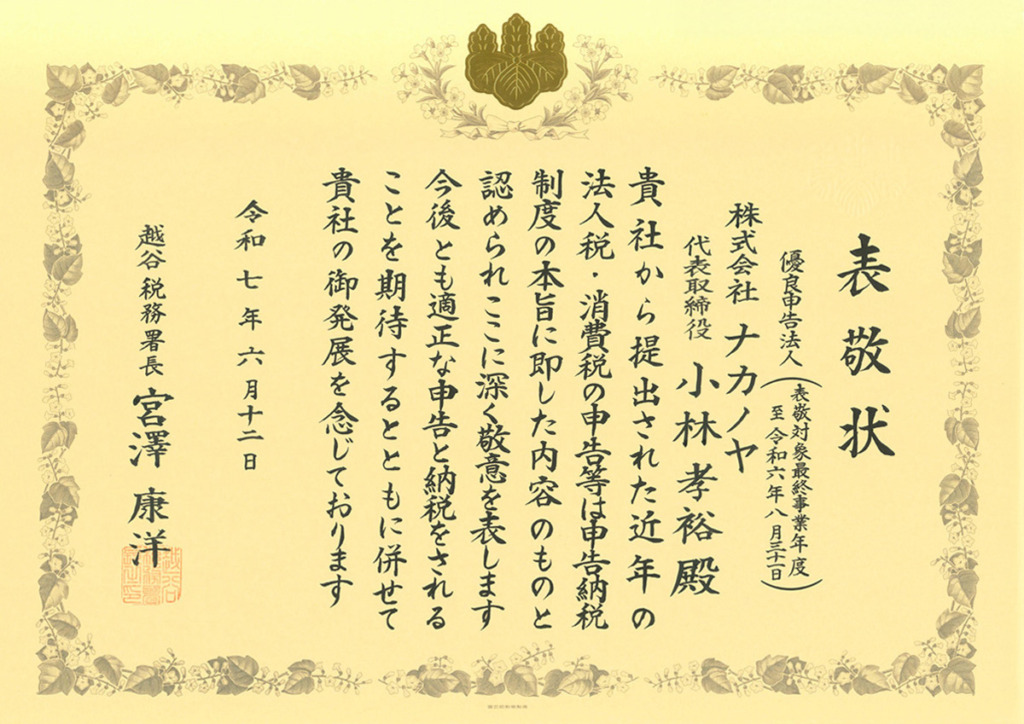 表敬状
優良申告法人
(表敬対象最終事業年度
至 令和六年八月三十一日)
株式会社 ナカノヤ
代表取締役 小林孝裕殿
貴社から提出された近年の
法人税・消費税の申告等は申告納税
制度の本旨に即した内容のものと
認められここに深く敬意を表します
今後とも適正な申告と納税をされる
ことを期待するとともに併せて
貴社の御発展を念じております
令和七年六月十二日
越谷税務署長 宮澤康洋